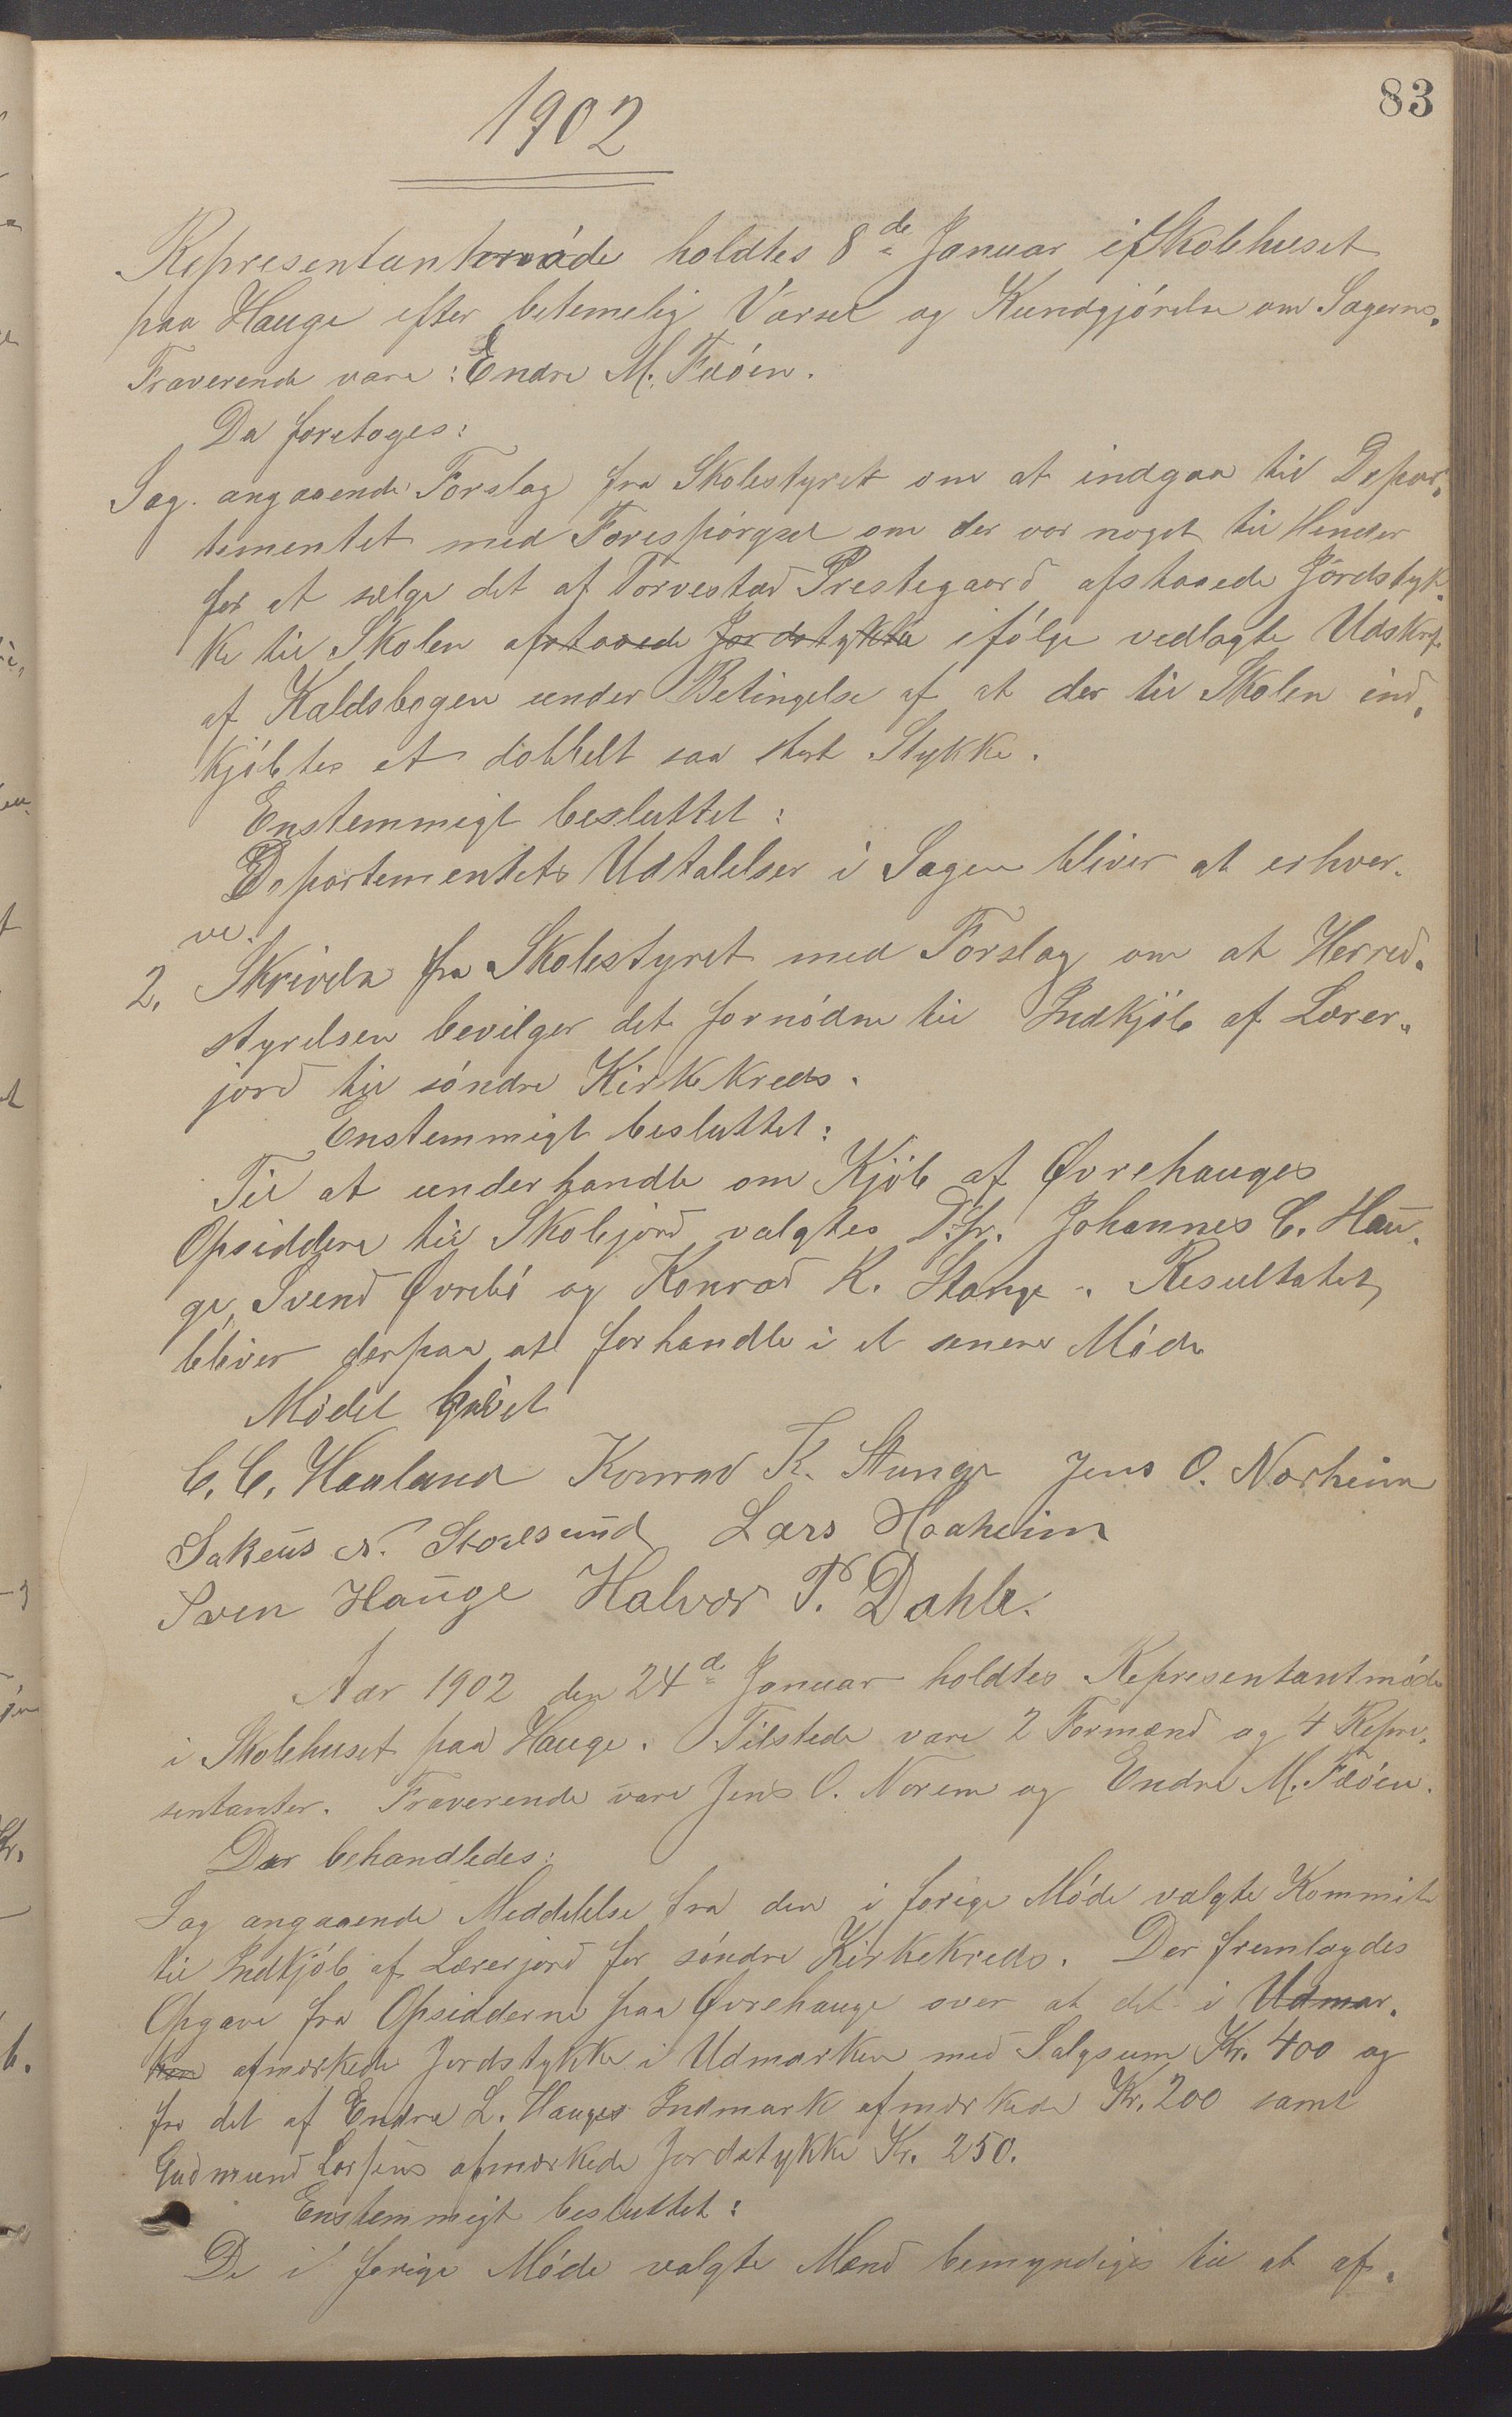 83
1902
Representantmøde holdtes 8de Januar i Skolehuset
paa Hauge efter betemelig Varsel og Kundgjørelse om Sagerne.
Fraverende vare: Endre M. Feöen.
Da foretoges:
Sag. angaaende Forslag fra Skolestyret om at indgaa til Depar-
tementet med Forespørgsel om der var noget til Hinder
for at sælge det af Torvestad Prestegaard afstaaede Jordstyk-
ke til Skolen afstaaede Jordstykke ifølge vedlagte Udskrift
af Kaldsbogen under Betingelse af at der til Skolen ind-
kjøbtes et dobbelt saa stort Stykke.
Enstemmigt besluttet:
Departementets Udtalelser i Sagen bliver at erhver-
ve.
2. Skrivelse fra Skolestyret med Forslag om at Herred-
styrelsen bevilger det fornødne til Indkjøb af Lærer-
jord til søndre Kirkekreds.
Enstemmigt besluttet:
Til at underhandle om Kjøb af Øvrehauges
Opsiddere til Skolejord valgtes Dhr. Johannes C. Hau-
ge, Svend Øvrebö og Konrad K. Stange. Resultatet
bliver derpaa at forhandle i et senere Møde
Mødet hævet
C. C. Haaland Konrad K. Stange Jens O. Norheim
Sakeus N. Stoelsund Lars Haaheim
Sven Hauge Halvor T. Dahle.
Aar 1902 den 24de Januar holdtes Representantmøde
i Skolehuset paa Hauge. Tilstede vare 2 Formænd og 4 Repre-
sentanter. Fraverende vare Jens O. Norem og Endre M. Feöen.
Der behandledes:
Sag angaaende Meddelelse fra den i forige Møde valgte Kommite
til Indkjøb af Lærerjord for søndre Kirkekreds. Der fremlagdes
Opgave fra Opsidderne paa Øvrehauge over at det i Udmar-
ken afmærkede Jordstykke i Udmarken med Salgsum Kr. 400 og
for det af Endre L. Hauges Indmark afmærkede Kr. 200 samt
Gudmund Larsens afmærkede Jordstykke Kr. 250.
Enstemmigt besluttet:
De i forige Møde valgte Mænd bemyndiges til at af-